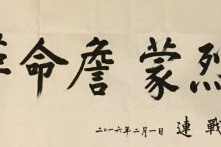 革命詹蒙烈
二〇一六年二月一日 連戰